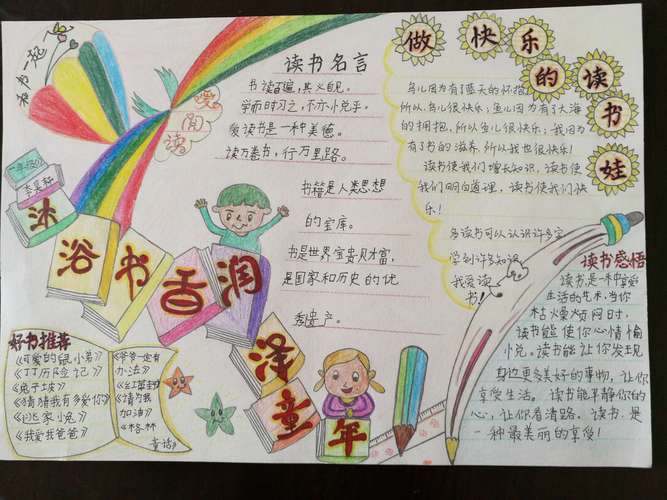 和书一起
爱阅读
沐浴书香润泽童年
读书名言
书读百遍,其义自见。
学而时习之,不亦小说乎。
爱读书是一种美德。
读万卷书,行万里路。
书籍是人类思想
的宝库。
书是世界宝贵财富,
是国家和历史的优
秀遗产。
做快乐的读书娃
鸟儿因为有了蓝天的怀抱
所以,鸟儿很快乐;鱼儿因为有了大海
的拥抱,所以鱼儿很快乐;我因为
有了书的滋养,所以我也很快乐!
读书使我们增长知识,读书使
我们明白道理,读书使我们快
乐!
多读书可以认识许多字
学到许多知识
我爱读
书!
读书感悟
读书,是一种
生活的艺术,当你
枯燥烦闷时,
读书能使你心情愉
悦。读书能让你发现
身边更多美好的事物,让你
享受生活。读书能平静你的
心,让你看清路。读书是
一种最美丽的享受!
好书推荐
《可爱的鼠小弟》
《丁丁历险记》
《兔子坡》
《猜猜我有多爱你》
《逃家小兔》
《我爱我爸爸》
《爷爷一定有
办法》
《请为我
加油》
《格林
童话》